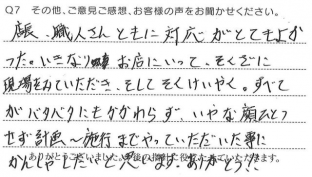 Q7 その他、ご意見ご感想、お客様の声をお聞かせください。
店長、職人さんともに対応がとてもよか
った。いきなりお店にいって、そくざに
現場をみていただき、そしてそくけいやく。すべて
がバタバタにもかかわらず、いやな顔ひとつ
せず計画〜施行までやっていただいた事に
かんしゃしたいと思います。ありがとう!!
ありがとうございました。今後の